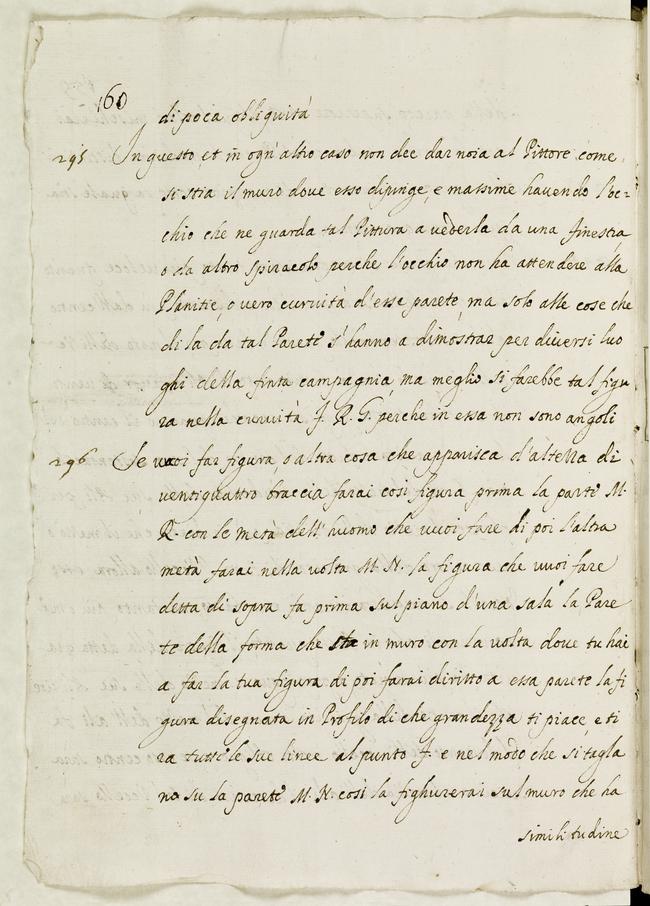 160
di poca obliquità
295 In questo, et in ogn'altro caso non dee dar noia al Pittore come
si stia il muro dove esso dipinge, e massime havendo l'oc=
chio che ne guarda tal Pittura a vederla da una finestra,
o da altro spiracolo perche l'occhio non ha attendere alla
Planitie, o vero curuità d'esse parete, ma solo alle cose che
di la da tal Parete s'hanno a dimostrar per diversi luo
ghi della finta campagnia, ma meglio si farebbe tal figu
ra nella curuità J. R. G. perche in essa non sono angoli
296 Se vuoi far figura, o altra cosa che apparisca d'altezza di
ventiquattro braccia farai così figura prima la parte M.
R. con le metà dell'huomo che vuoi fare di poi l'altra
metà farai nella volta M. N. la figura che vuoi fare
detta di sopra fa prima sul piano d'una sala la Pare
te della forma che sta in muro con la volta dove tu hai
a far la tua figura di poi farai diritto a essa parete la fi
gura disegnata in Profilo di che grandezza ti piace, e ti
ra tutte le sue linee al punto J. e nel mòdo che si tagla
no su la parete M. N. così la fighurerai sul muro che ha
similitudine